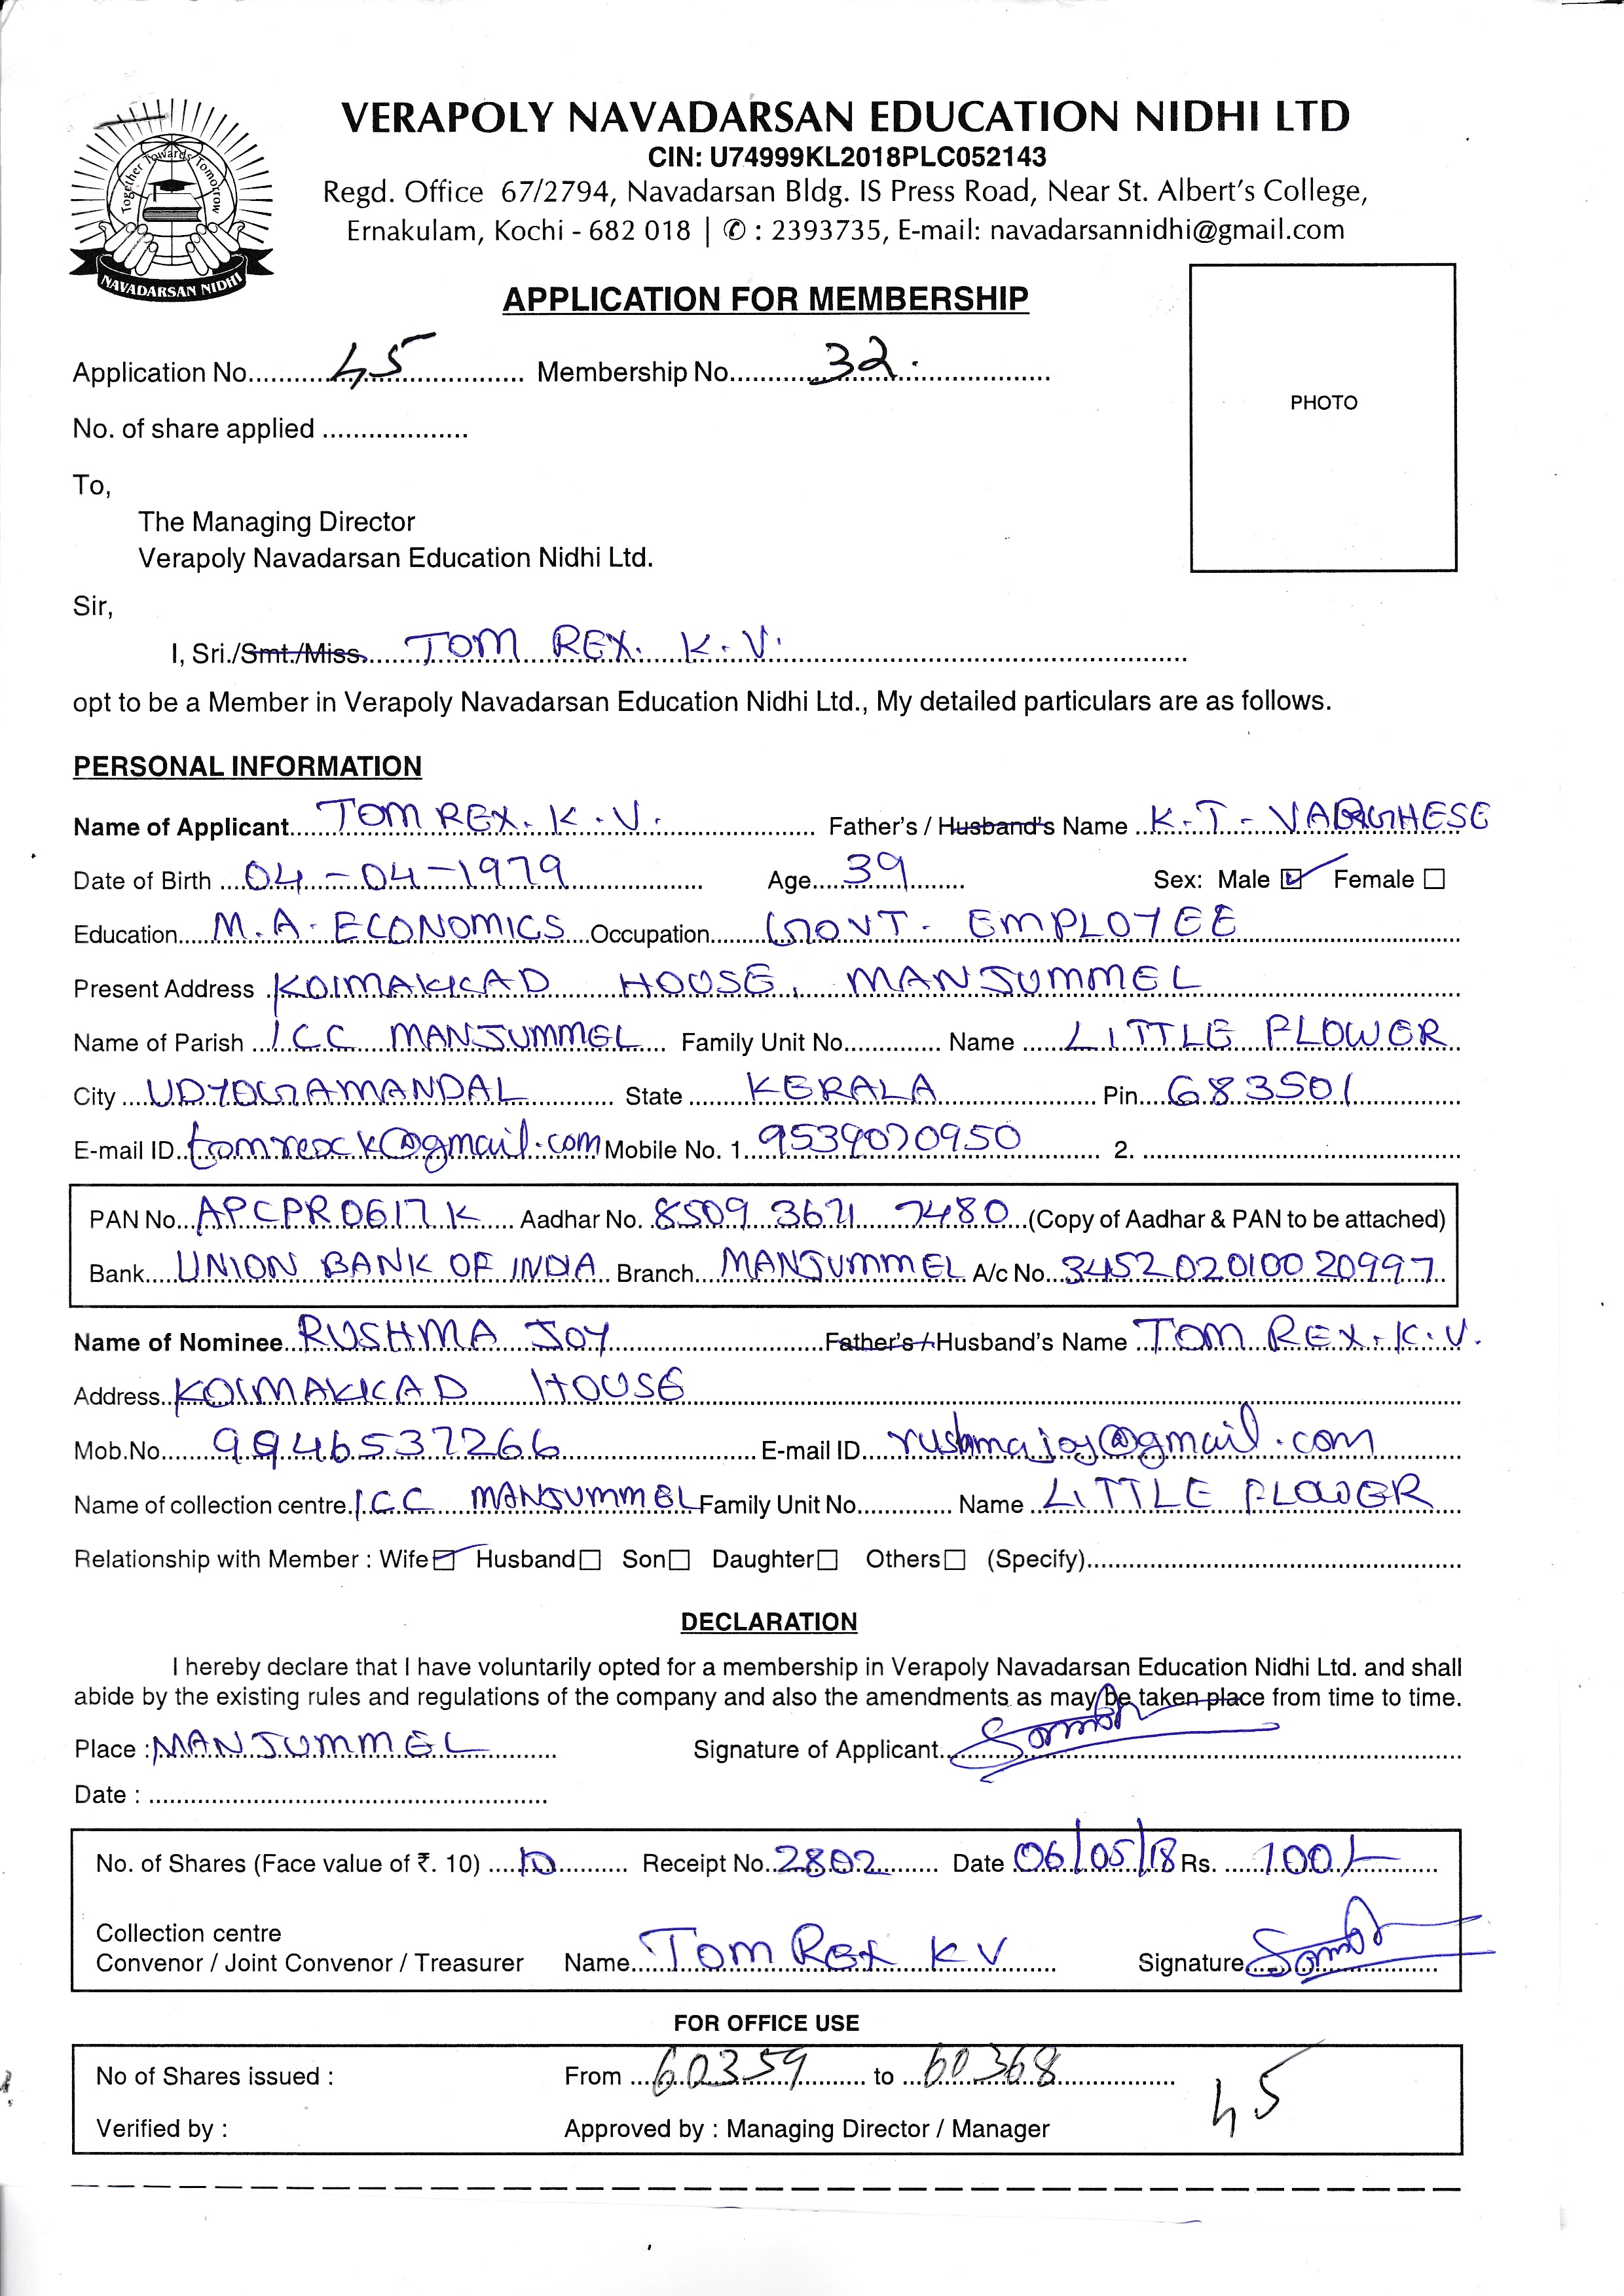 VERAPOLY NAVADARSAN EDUCATION NIDHI LTD
CIN: U74999KL2018PLC052143
Regd. Office 67/2794, Navadarsan Bldg. IS Press Road, Near St. Albert's College,
Ernakulam, Kochi - 682 018 | ✆ : 2393735, E-mail: navadarsannidhi@gmail.com
Together Towards Tomorrow
NAVADARSAN NIDHI
APPLICATION FOR MEMBERSHIP
Application No. 45 Membership No. 32.
PHOTO
No. of share applied
To,
The Managing Director
Verapoly Navadarsan Education Nidhi Ltd.
Sir,
I, Sri./Smt./Miss. TOM REX. K.V.
opt to be a Member in Verapoly Navadarsan Education Nidhi Ltd., My detailed particulars are as follows.
PERSONAL INFORMATION
Name of Applicant TOM REX. K.V. Father's / Husband's Name K.T. VARGHESE
Date of Birth 04-04-1979 Age 39 Sex: Male ☑ Female ☐
Education M.A. ECONOMICS Occupation GOVT. EMPLOYEE
Present Address KOIMAKKAD HOUSE, MANJUMMEL
Name of Parish ICC MANJUMMEL Family Unit No. Name LITTLE FLOWER
City UDYOGAMANDAL State KERALA Pin 683501
E-mail ID tomrexck@gmail.com Mobile No. 1. 9539070950 2.
PAN No. APCPR0617K Aadhar No. 8509 3671 7480 (Copy of Aadhar & PAN to be attached)
Bank UNION BANK OF INDIA Branch MANJUMMEL A/c No. 345202010020997
Name of Nominee RUSHMA JOY Father's / Husband's Name TOM REX. K.V.
Address KOIMAKKAD HOUSE
Mob.No. 9946537266 E-mail ID rushmajoy@gmail.com
Name of collection centre ICC MANJUMMEL Family Unit No. Name LITTLE FLOWER
Relationship with Member : Wife ☑ Husband ☐ Son ☐ Daughter ☐ Others ☐ (Specify)
DECLARATION
I hereby declare that I have voluntarily opted for a membership in Verapoly Navadarsan Education Nidhi Ltd. and shall
abide by the existing rules and regulations of the company and also the amendments as may be taken place from time to time.
Place : MANJUMMEL Signature of Applicant
Date :
No. of Shares (Face value of ₹. 10) 10 Receipt No. 2802 Date 06/05/18 Rs. 100/-
Collection centre
Convenor / Joint Convenor / Treasurer Name TOM REX KV Signature
FOR OFFICE USE
No of Shares issued : From 60359 to 60368 45
Verified by : Approved by : Managing Director / Manager